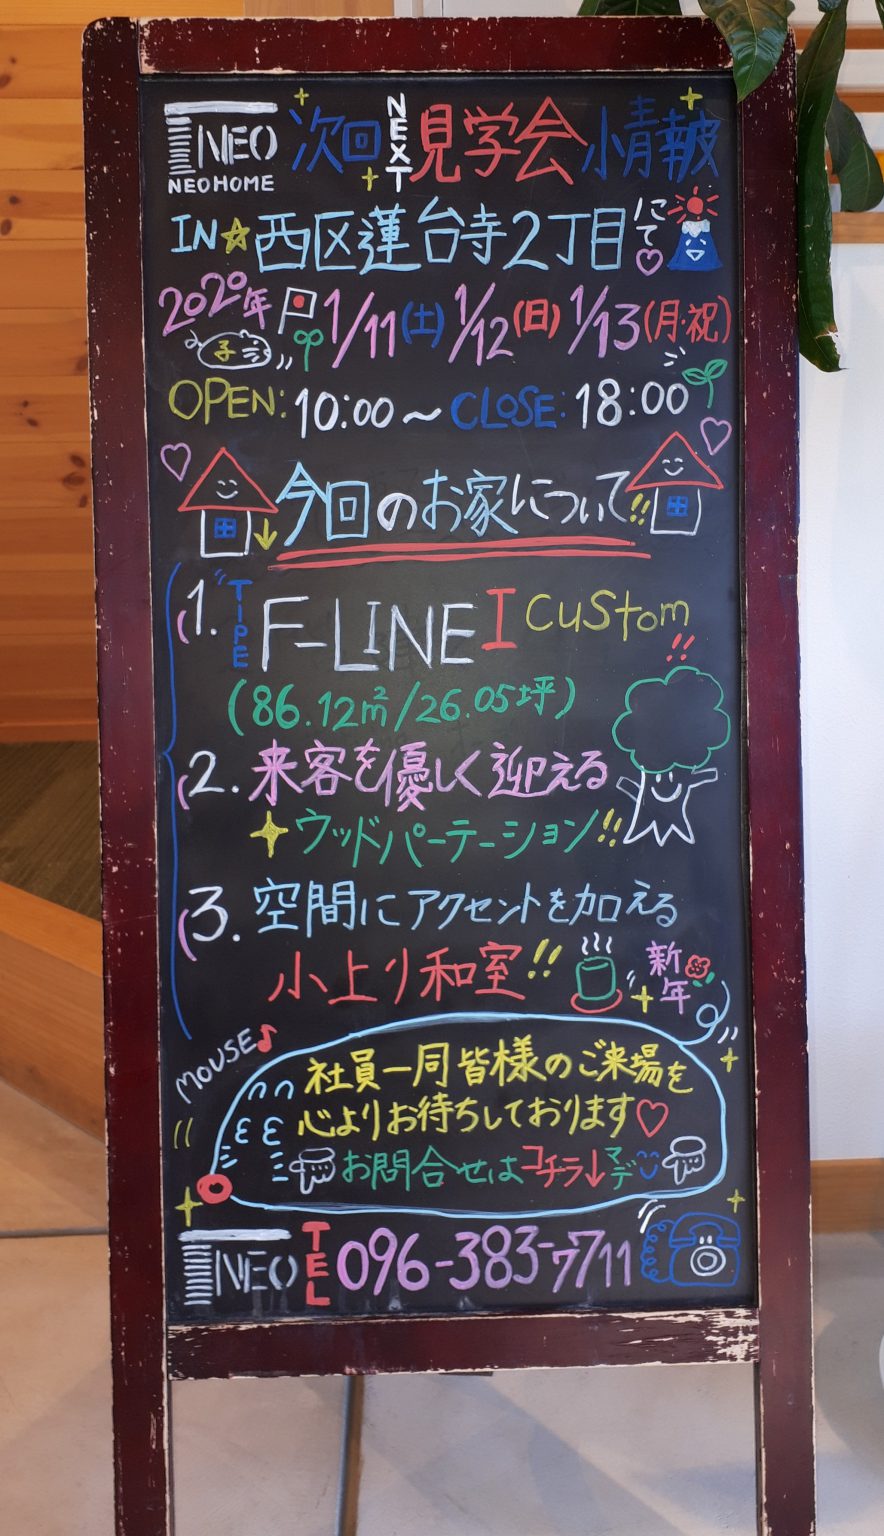 NEO 次回 NEXT 見学会 情報
NEOHOME
IN 西区蓮台寺2丁目にて
2020年 1/11(土) 1/12(日) 1/13(月・祝)
子
OPEN: 10:00〜CLOSE: 18:00
今回のお家について!!
1. TIPE F-LINE I custom!!
(86.12㎡/26.05坪)
2. 来客を優しく迎える
ウッドパーテーション!!
3. 空間にアクセントを加える
小上り和室!!
新年
MOUSE♪
社員一同皆様のご来場を
心よりお待ちしております♡
お問合せはコチラ↓マデ
NEO TEL 096-383-7711